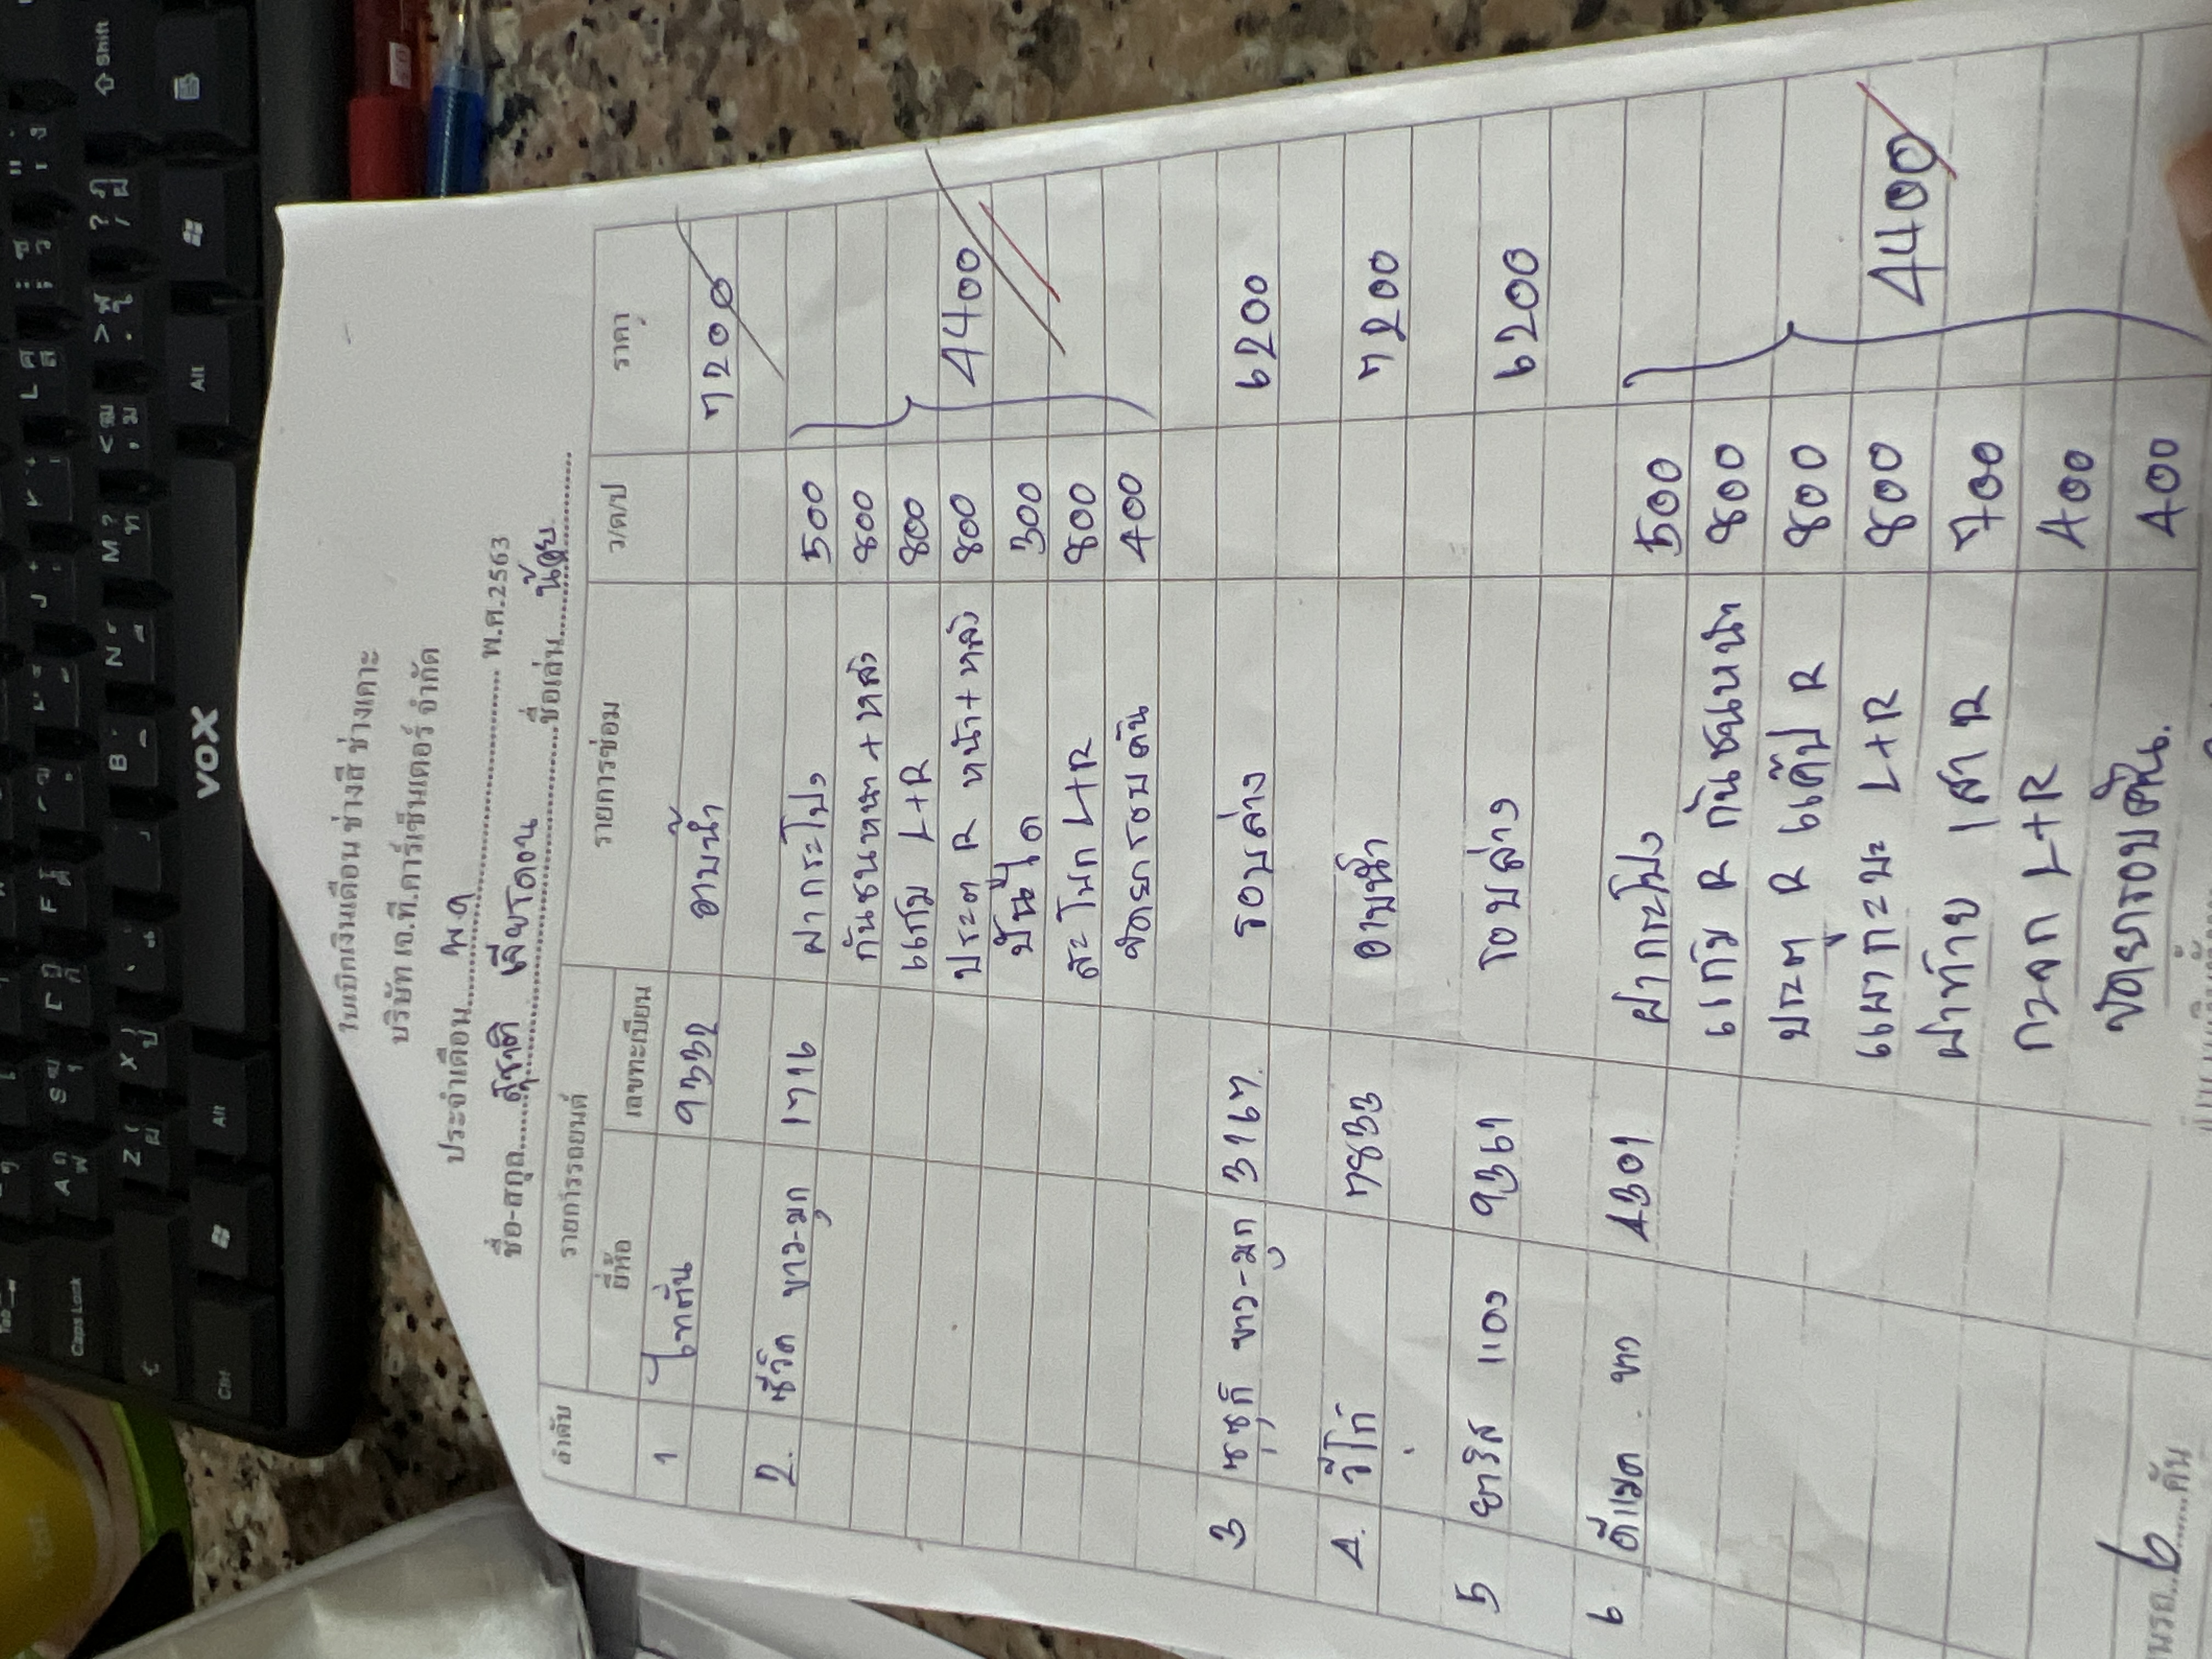 ใบเบิกเงินเดือน ช่างสี ช่างเคาะ
บริษัท เจ.ที.คาร์เซ็นเตอร์ จำกัด
ประจำเดือน......พ.ค......พ.ศ.2563
ชื่อ-สกุล......สุชาติ......ชื่อเล่น......น้อย......
ลำดับ รายการรถยนต์ รายการซ่อม ว/ด/ป ราคา
ยี่ห้อ เลขทะเบียน
1 ไทตัน 9332 อาบน้ำ 7200
2. ซีวิค ขาว-มุก 1716 ฝากระโปง 500
กันชนหน้า + หลัง 800
แก้ม L+R 800
ประตู R หน้า + หลัง 800 4400
บันได 300
สะโพก L+R 800
ขัดยารอบคัน 400
3 ซูซูกิ ขาว-มุก 3167 รอบล่าง 6200
4. วีโก้ 7833 อาบน้ำ 7200
5 ยาริส แดง 9361 รอบล่าง 6200
6 ดีแมค ขาว 4301 ฝากระโปง 500
แก้ม R กันชนหน้า 800
ประตู R แค๊ป R 800
แผงกะบะ L+R 800 4400
ฝาท้าย เสา R 700
กวอก L+R 400
ขัดยารอบคัน. 400
6......คัน
VOX
Shift
Alt
Alt
Ctrl
Caps Lock
Tab